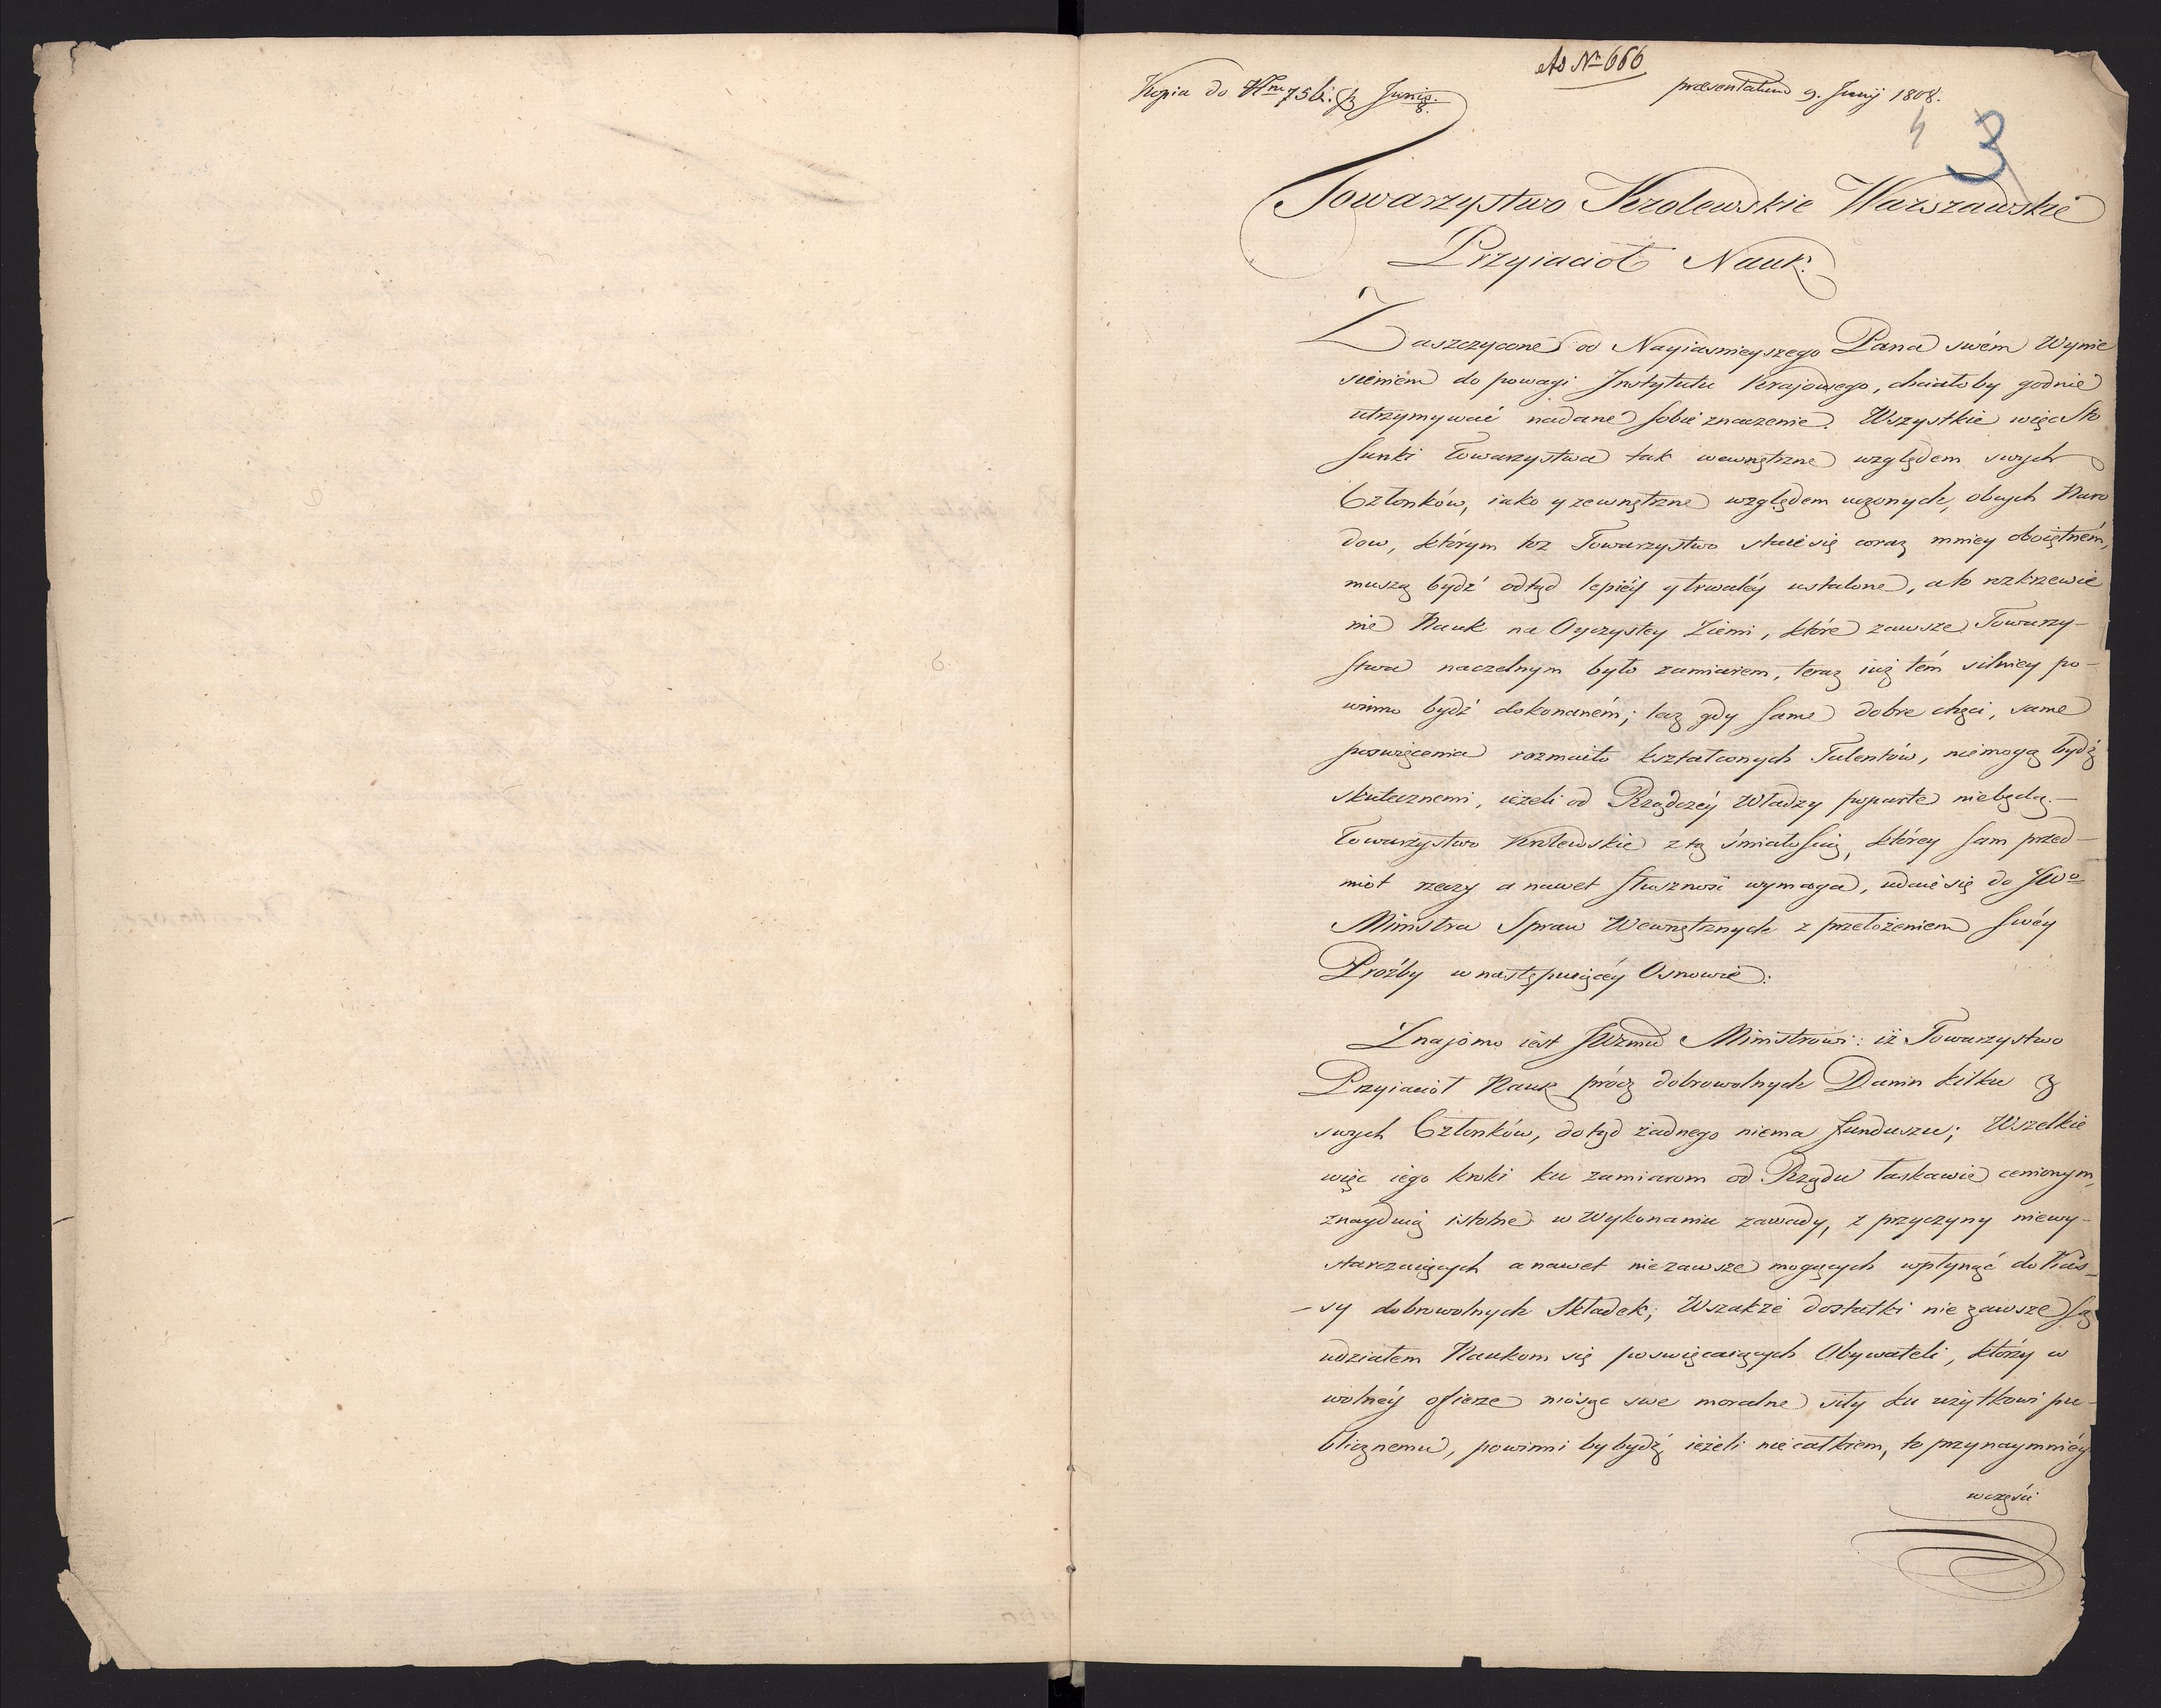 Ad Nr 666
Kopia do Nru 756. Junis. 8.
praesentatum 9. Junij 1808.
4 3
Towarzystwo Krolewskie Warszawskie
Przyiaciół Nauk.
Zaszczycone od Nayiasnieyszego Pana swém Wynie
sieniem do powagi Instytutu Krajowego, chciałoby godnie
utrzymywać nadane sobie znaczenie. Wszystkie więc sto
sunki Towarzystwa tak wewnętrzne względem swych
Członków, iako y zewnętrzne względem uczonych, obcych Naro
dow, którym toż Towarzystwo staie się coraz mniey oboiętném,
muszą bydź odtąd lepiéy y trwaléy ustalone, a to rozkrzewie
nie Nauk na Oyczystey Ziemi, które zawsze Towarzy-
stwa naczelnym było zamiarem, teraz iuż tém silniey po-
winno bydź dokonaném; lecz gdy same dobre chęci, same
poswięcenia rozmaito kształconych Talentów, niemogą bydź
skutecznemi, ieżeli od Rządczéy Władzy poparte niebędą.-
Towarzystwo Krolewskie z tą śmiałością, którey sam przed-
miot rzeczy a nawet słuszność wymaga, udaie się do JWo
Ministra Spraw Wewnętrznych z przełożeniem swéy
Proźby w następuiącéy Osnowie:
Znajomo iest JWzmu Ministrowi: iż Towarzystwo
Przyiaciół Nauk prócz dobrowolnych Danin kilku z
swych Członków, dotąd żadnego niema funduszu; Wszelkie
więc iego kroki ku zamiarom od Rządu łaskawie cenionym,
znayduią istotne w Wykonaniu zawady, z przyczyny niewy-
starczaiących a nawet niezawsze mogących wpłynąć do Kas-
-sy dobrowolnych Składek; Wszakże dostatki nie zawsze są
udziałem Naukom się poswięcaiących Obywateli, którzy w
wolnéy ofierze niosąc swe moralne siły ku użytkowi pu-
blicznemu, powinni by bydź ieżeli nie całkiem, to przynaymniéy
w części